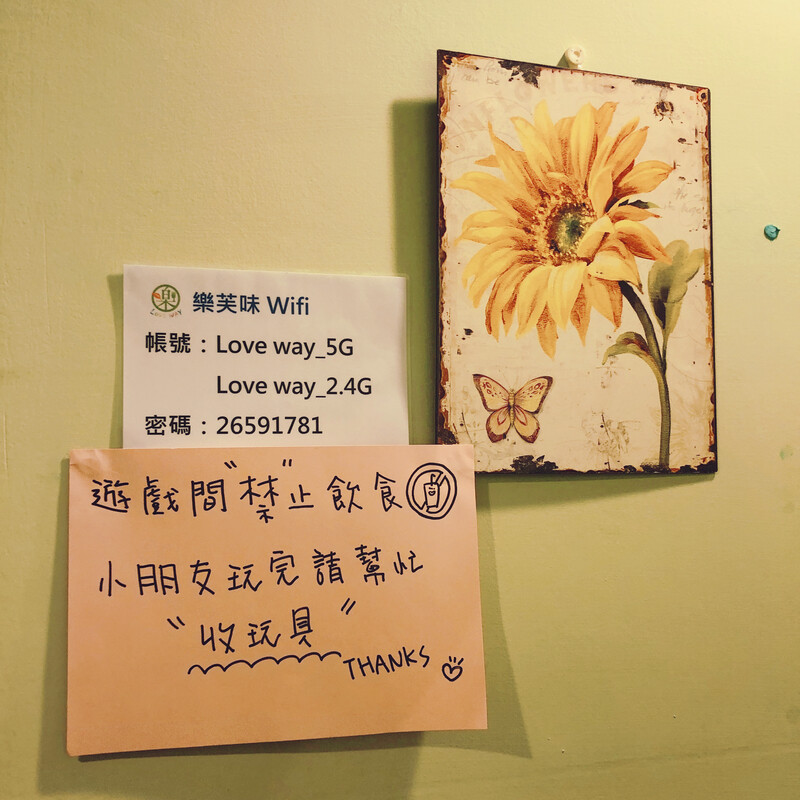 樂芙味 Wifi
帳號：Love way_5G
Love way_2.4G
密碼：26591781
遊戲間"禁"止飲食
小朋友玩完請幫忙
"收玩具"
THANKS